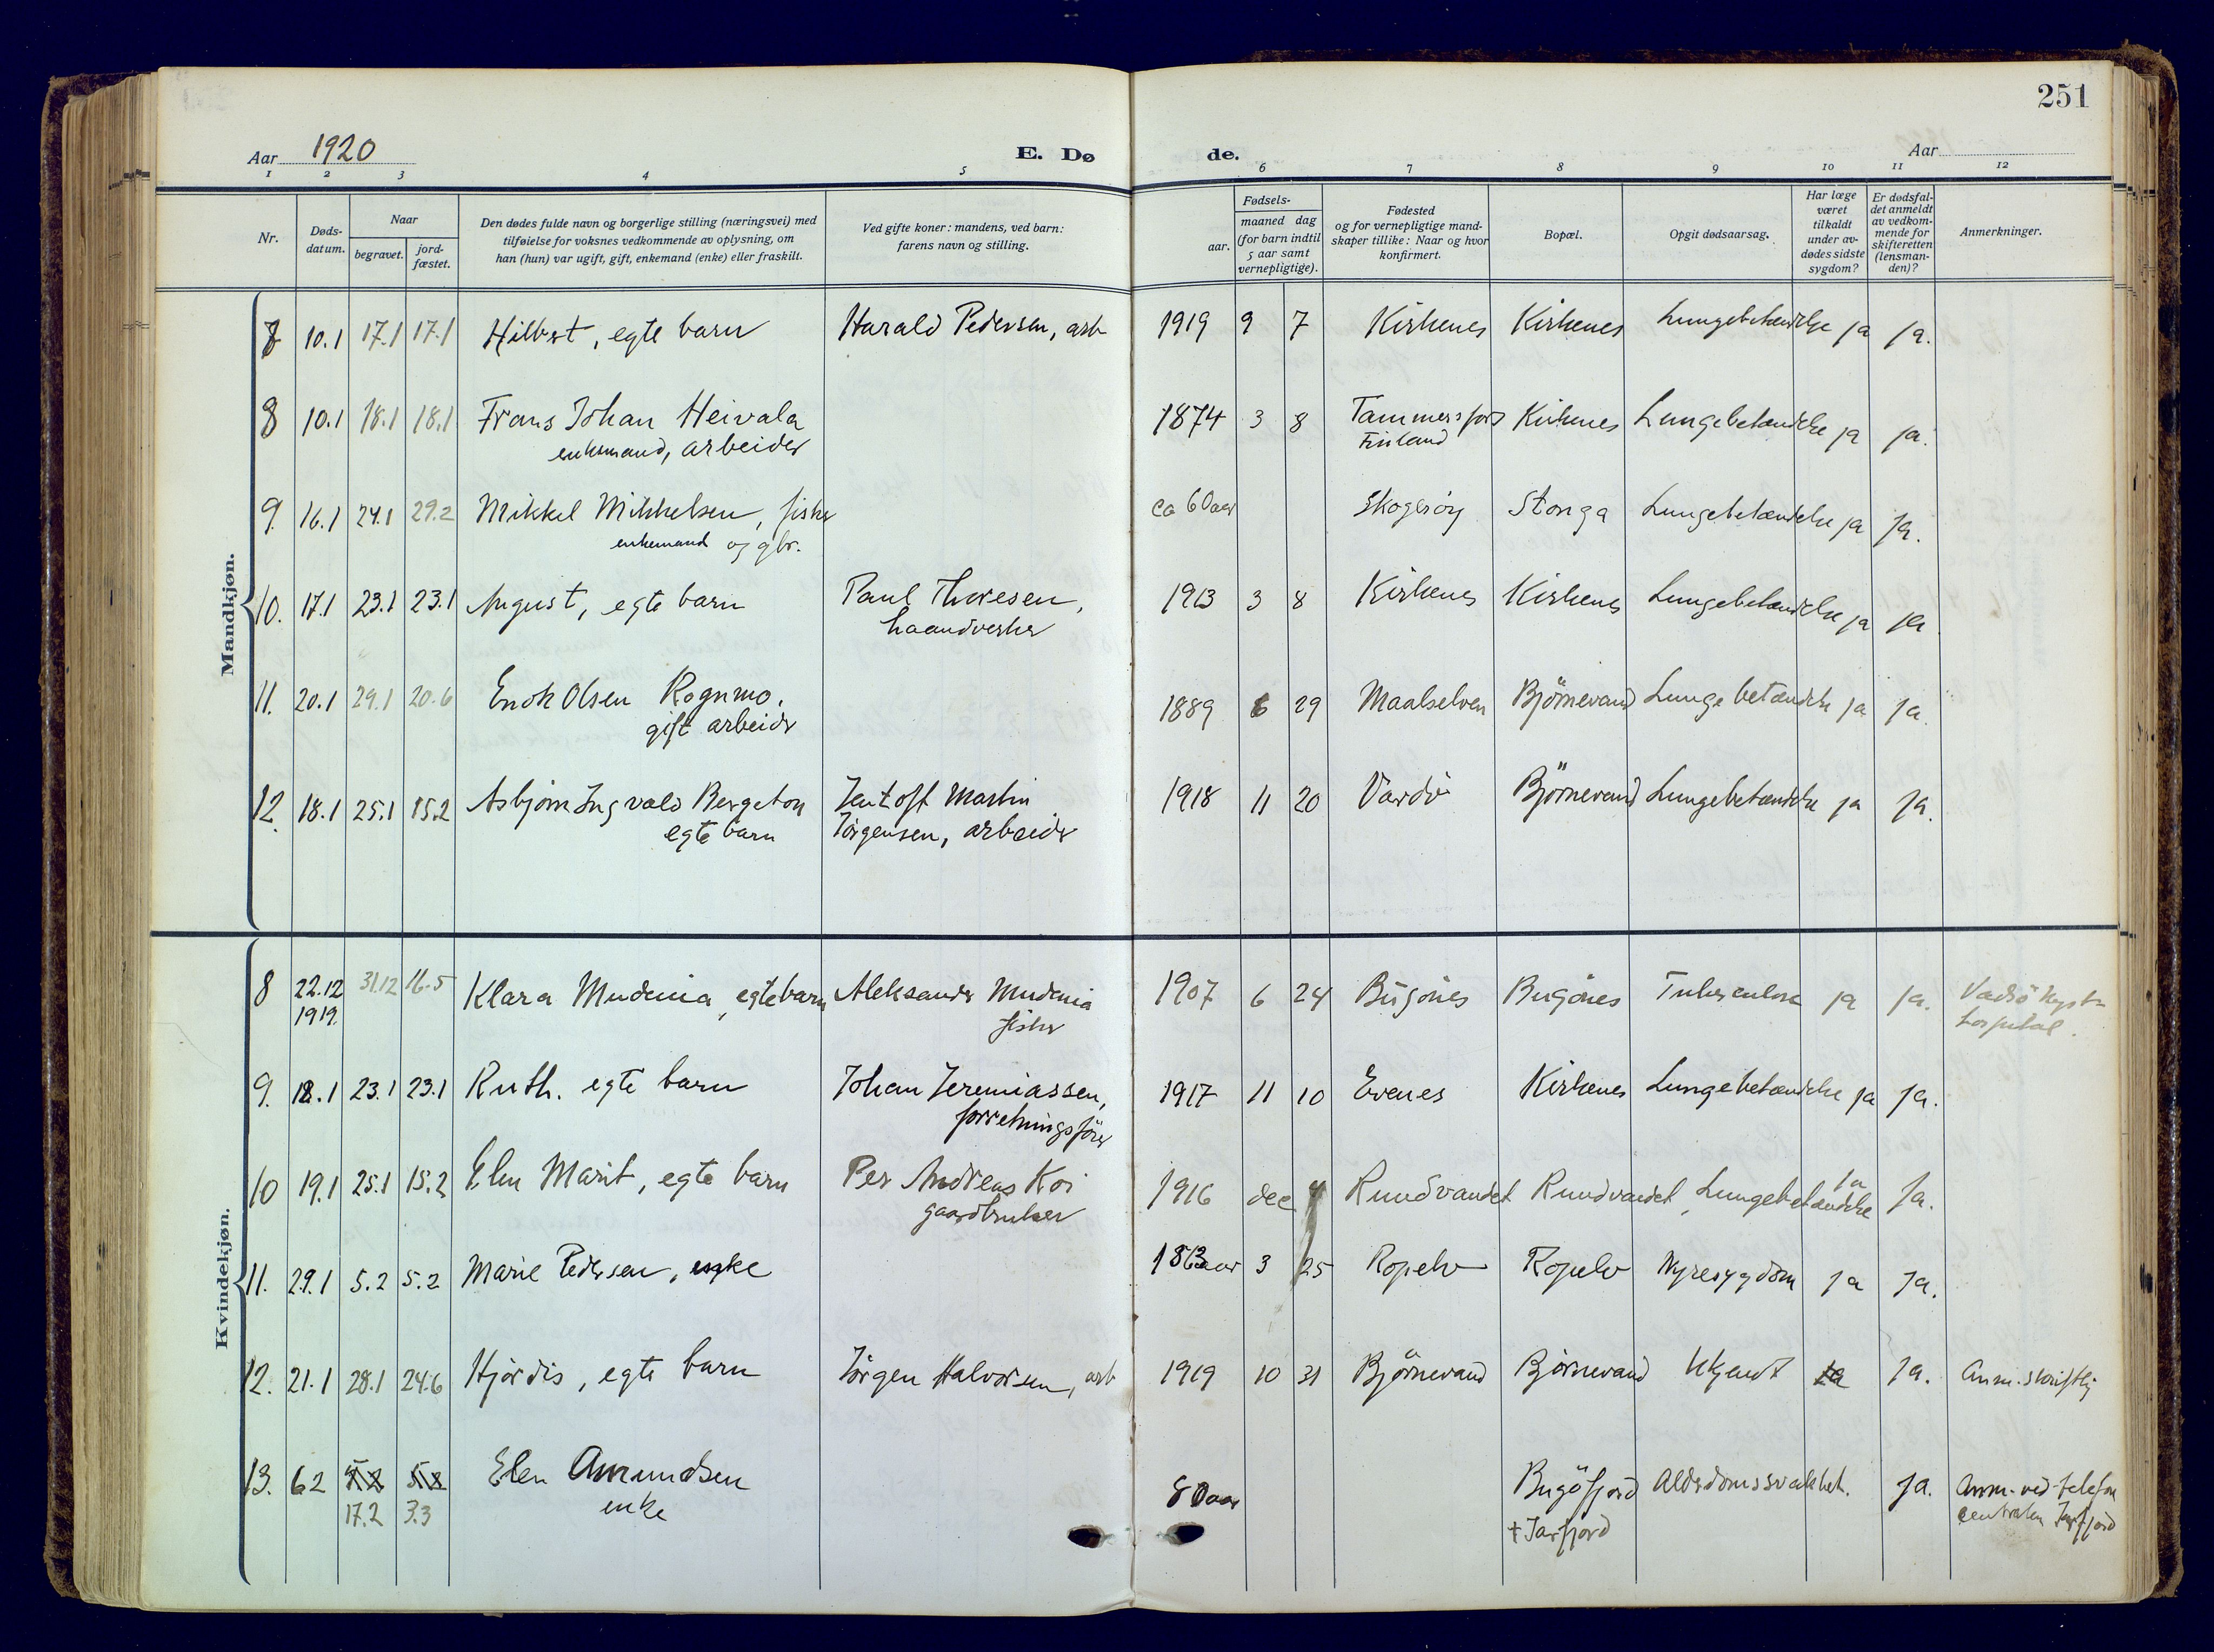 251
Aar 1920
E. Dø
de.
Aar
1 2 3 4 5 6 7 8 9 10 11 12
Nr.
Døds-
datum.
Naar
begravet.
jord-
fæstet.
Den dødes fulde navn og borgerlige stilling (næringsvei) med
tilføielse for voksnes vedkommende av oplysning, om
han (hun) var ugift, gift, enkemand (enke) eller fraskilt.
Ved gifte koner: mandens, ved barn:
farens navn og stilling.
aar.
Fødsels-
maaned dag
(for barn indtil
5 aar samt
vernepligtige).
Fødested
og for vernepligtige mand-
skaper tillike: Naar og hvor
konfirmert.
Bopæl.
Opgit dødsaarsag.
Har læge
været
tilkaldt
under av-
dødes sidste
sygdom?
Er dødsfal-
det anmeldt
av vedkom-
mende for
skifteretten
(lensman-
den)?
Anmerkninger.
Mandkjøn.
7 10.1 17.1 17.1 Hilbert, egte barn Harald Pedersen, arb 1919 9 7 Kirkenes Kirkenes Lungebetændelse ja ja.
8 10.1 18.1 18.1 Frans Johan Heivala 1874 3 8 Tammersfors Kirkenes Lungebetændelse ja ja.
enkemand, arbeider Finland
9. 16.1 24.1 29.2 Mikkel Mikkelsen, fisker ca 60 aar Skogerøy Stonga Lungebetændelse ja ja.
enkemand og gbr.
10. 17.1 23.1 23.1 August, egte barn Paul Thoresen, 1913 3 8 Kirkenes Kirkenes Lungebetændelse ja ja
haandverker
11. 20.1 29.1 20.6 Enok Olsen Rognmo. 1889 6 29 Maalselven Björnevand Lungebetændelse ja ja.
gift arbeider
12. 18.1 25.1 15.2 Asbjørn Ingvald Bergeton Jentoft Martin 1918 11 20 Vardö Björnevand Lungebetændelse ja ja.
egte barn Jørgensen, arbeider
Kvindekjøn.
8 22.12 31.12 16.5 Klara Mudenia, egte barn Aleksander Mudenia 1907 6 24 Bugönes Bugönes Tuberculose ja ja. Vadsö kyst-
1919. fisker hospital.
9. 18.1 23.1 23.1 Ruth. egte barn Johan Jeremiassen, 1917 11 10 Evenes Kirkenes Lungebetændelse ja ja.
forretningsfører
10 19.1 25.1 15.2 Elen Marit, egte barn Per Andreas Koi 1916 dec 4 Rundvandet Rundvandet Lungebetændelse ja ja.
gaardbruker
11. 29.1 5.2 5.2 Marie Pedersen, enke 1863 3 25 Ropelv Ropelv Nyresygdom ja ja.
12. 21.1 28.1 24.6 Hjördis, egte barn Jörgen Halvorsen, arb 1919 10 31 Björnevand Björnevand Ukjendt ja ja. Anm. skriftlig
13. 6.2 5.2 5.2 Elen Amundsen 80 aar Bugöfjord Alderdomssvakhet. ja. Anm. ved telefon
17.2 3.3 enke † Jarfjord centralen Jarfjord